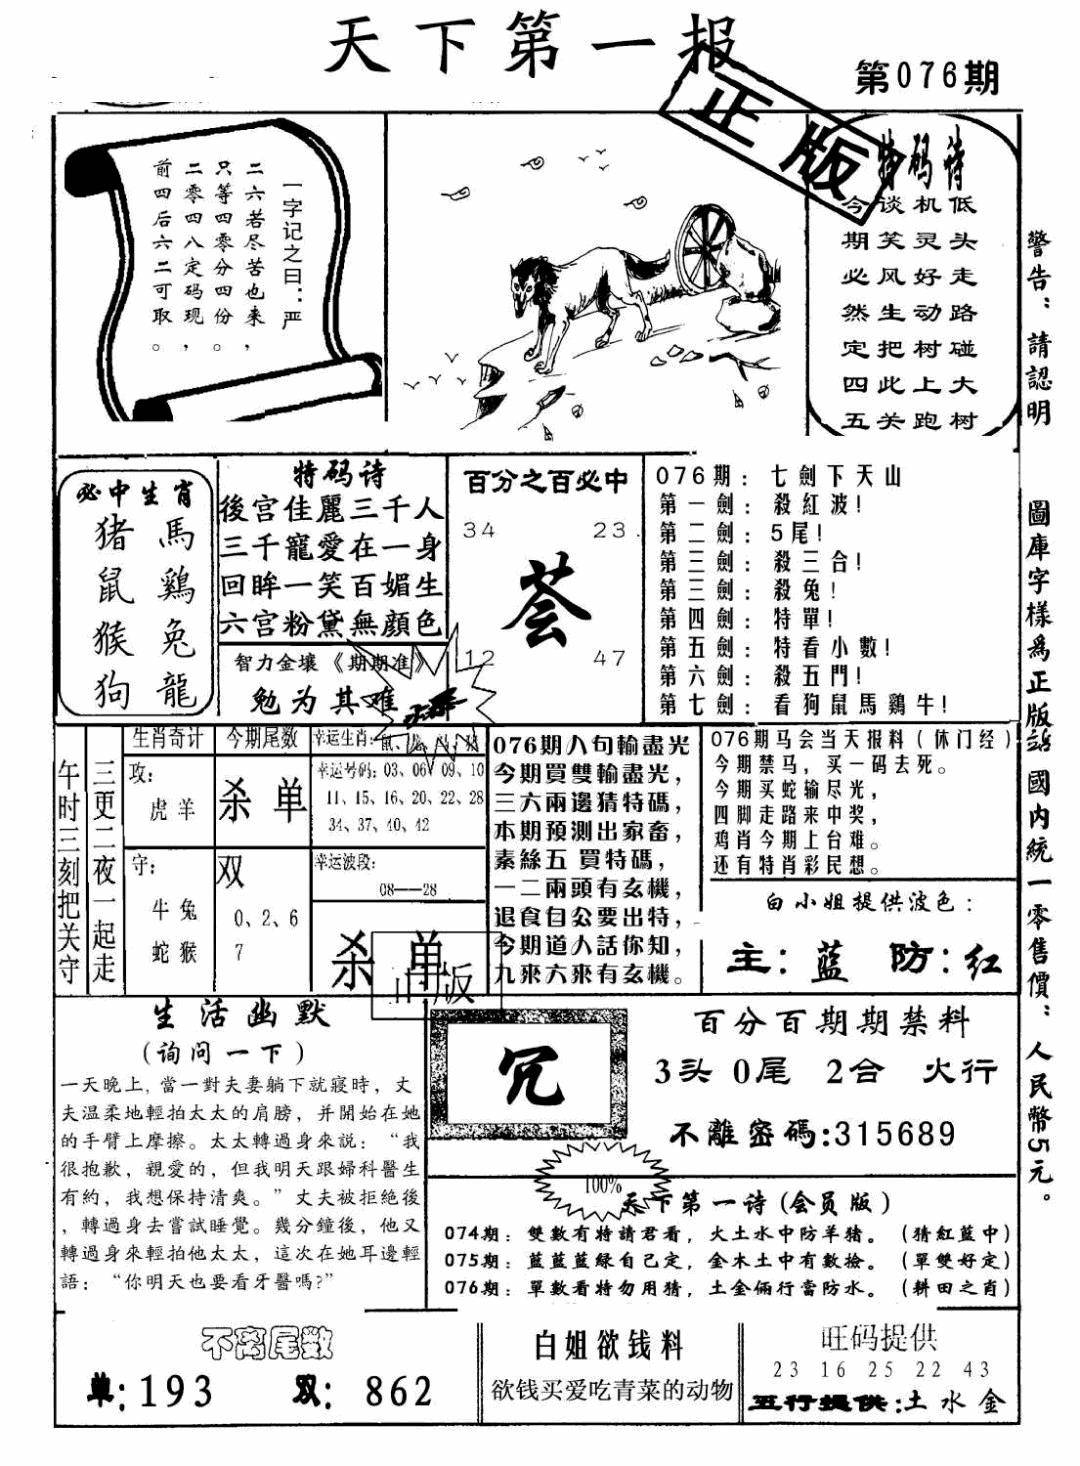 天下第一报
第076期
正版
一字记之曰：严
二六若尽苦也来，
只等四零分四份。
二零四八定码现，
前四后六二可取。
特码诗
低头走路碰大树
机灵好动树上跑
谈笑风生把此关
今期必然定四五
警告：請認明 圖庫字樣爲正版 國内統一零售價：人民幣5元。
必中生肖
猪 馬
鼠 鷄
猴 兔
狗 龍
特码诗
後宫佳麗三千人
三千寵愛在一身
回眸一笑百媚生
六宫粉黛無顔色
智力金壤《期期准》
勉为其难
百分之百必中
34 23
荟
12 47
076期：七劍下天山
第一劍：殺紅波！
第二劍：5尾！
第三劍：殺三合！
第三劍：殺兔！
第四劍：特單！
第五劍：特看小數！
第六劍：殺五門！
第七劍：看狗鼠馬鷄牛！
午时三刻把关守
三更二夜一起走
生肖奇计 今期尾数
攻：
虎羊
杀单
守：
牛兔
蛇猴
双
0、2、6
7
幸运生肖：
幸运号码：03、06 09、10
11、15、16、20、22、28
34、37、40、42
幸运波段：
08——28
杀单
正版
076期八句輸盡光
今期買雙輸盡光，
三六兩邊猜特碼，
本期預測出家畜，
素絲五 買特碼，
一二兩頭有玄機，
退食自公要出特，
今期道人話你知，
九來六來有玄機。
076期马会当天报料(休门经)
今期禁马，买一码去死。
今期买蛇输尽光，
四脚走路来中奖，
鸡肖今期上台难。
还有特肖彩民想。
白小姐提供波色：
主：蓝 防：红
生活幽默
(询问一下)
一天晚上，當一對夫妻躺下就寢時，丈
夫温柔地輕拍太太的肩膀，并開始在她
的手臂上摩擦。太太轉過身來説：“我
很抱歉，親愛的，但我明天跟婦科醫生
有約，我想保持清爽。”丈夫被拒絶後
，轉過身去嘗試睡覺。幾分鐘後，他又
轉過身來輕拍他太太，這次在她耳邊輕
語：“你明天也要看牙醫嗎?”
冗
百分百期期禁料
3头 0尾 2合 火行
不離密碼:315689
100%
天下第一诗(会员版)
074期：雙數有特請君看，火土水中防羊猪。（猜紅藍中）
075期：藍藍藍緑自己定，金木土中有數撿。（單雙好定）
076期：單數看特勿用猜，土金倆行當防水。（耕田之肖）
不离尾数
单：193 双：862
白姐欲钱料
欲钱买爱吃青菜的动物
旺码提供
23 16 25 22 43
五行提供:土水金